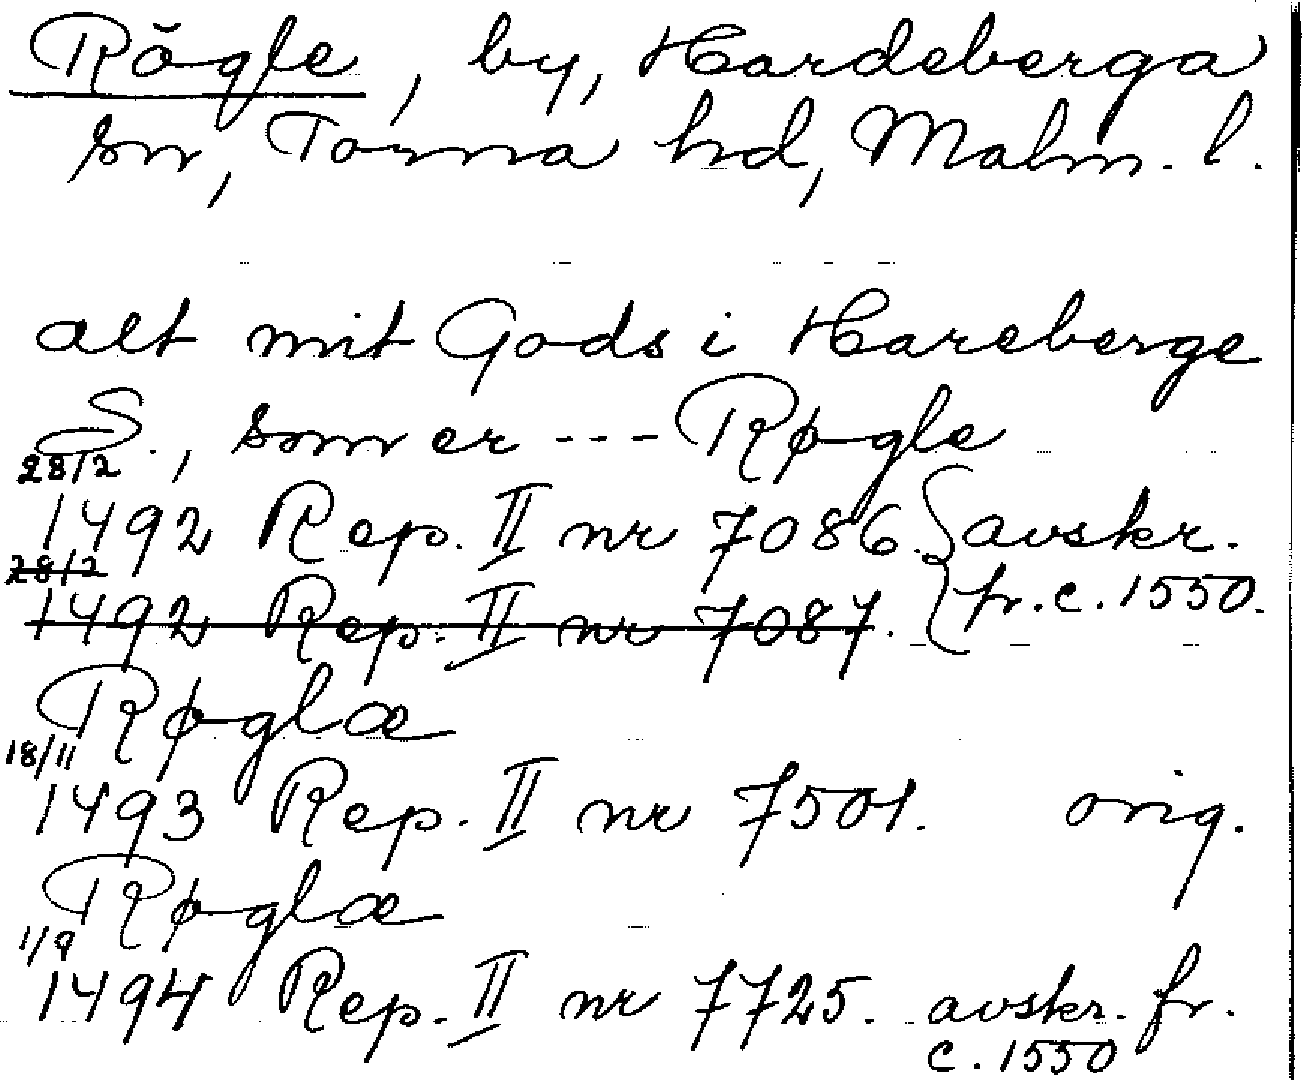 Rögle, by, Hardeberga
sn, Torna hd, Malm. l.
alt mit Gods i Hareberge
S., som er --- Røgle
28/2
1492 Rep. II nr 7086. } avskr.
28/2
1492 Rep. II nr 7087. } fr. c. 1550.
Røglæ
18/11
1493 Rep. II nr 7501. orig.
Røglæ
1/9
1494 Rep. II nr 7725. avskr. fr.
c. 1550